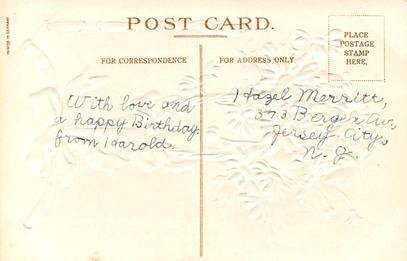 POST CARD.
FOR CORRESPONDENCE
FOR ADDRESS ONLY
PLACE
POSTAGE
STAMP
HERE.
With love and
a happy Birthday.
from Harold.
Hazel Merritt,
373 Bergen Av.,
Jersey City,
N. J.
PRINTED IN GERMANY